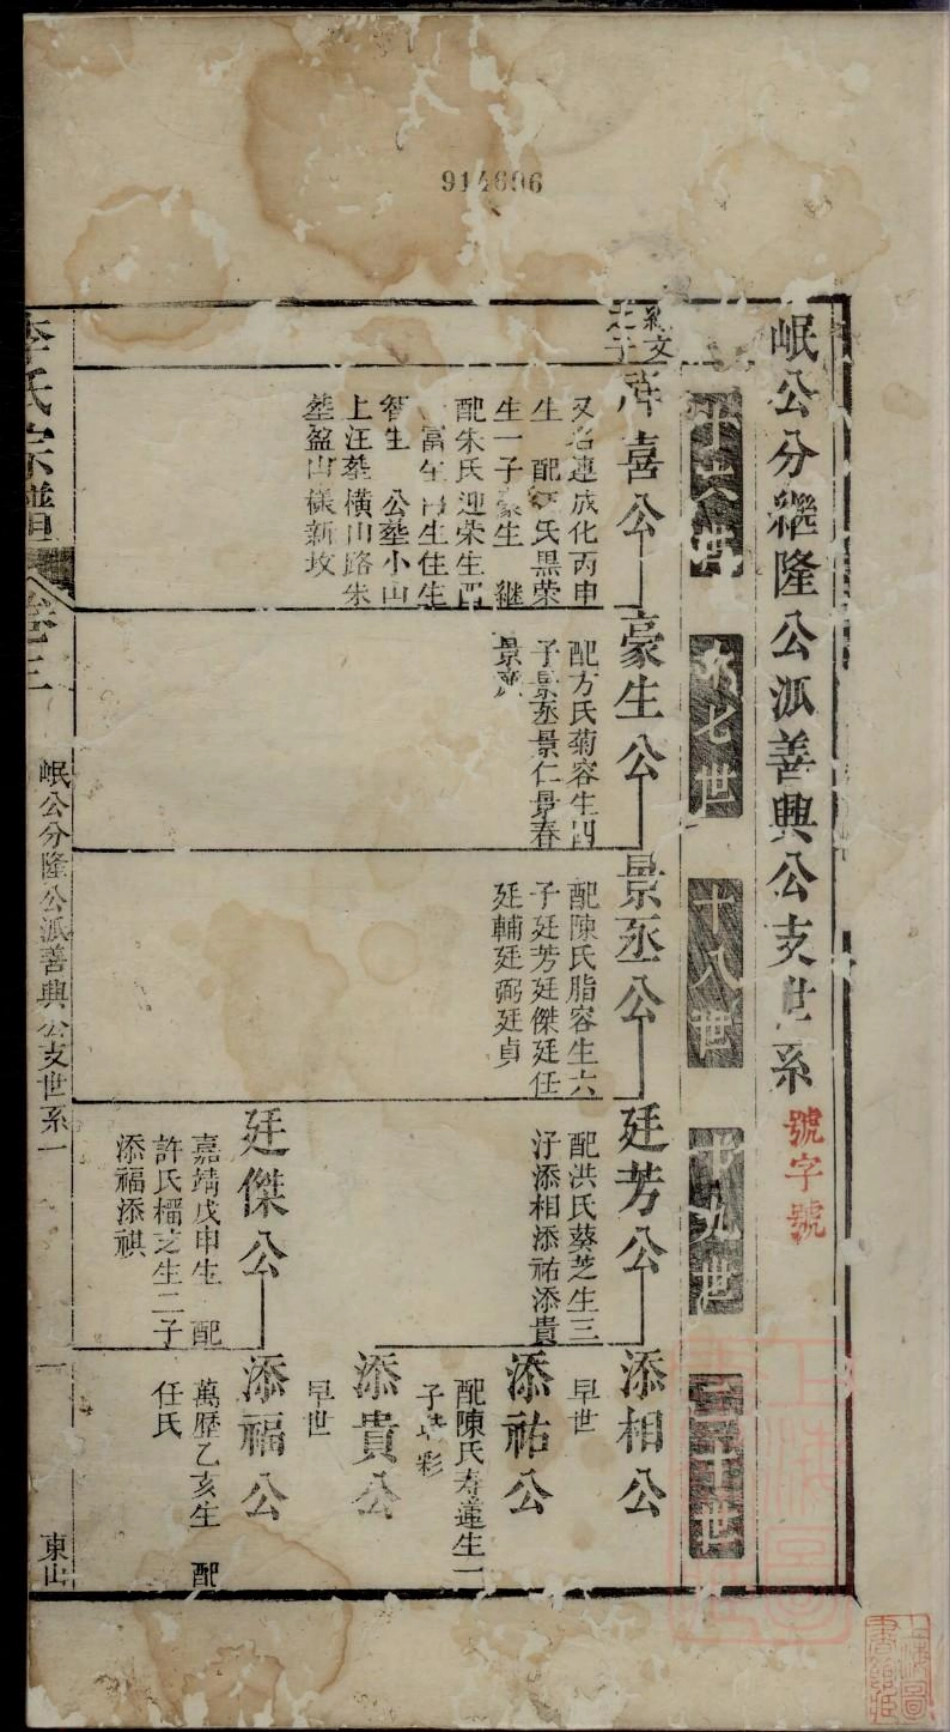 914606
岷公分繼隆公派善興公支世系
號字號
十六世
十七世
十八世
十九世
二十世
喜公
又名連成化丙申
生 配 氏黑荣
生一子豪生 継
配朱氏迎荣生四
富生 生住生
智生 公塟小山
上汪塟横山路朱
塟盈山様新坟
豪生公
配方氏菊容生四
子景丞景仁景春
景
景丞公
配陳氏脂容生六
子廷芳廷傑廷任
廷輔廷弼廷貞
廷芳公
配洪氏葵芝生三
子添相添祐添貴
廷傑公
嘉靖戊申生 配
許氏櫑芝生二子
添福添祺
添相公
早世
添祐公
配陳氏寿蓮生一
子 彩
添貴公
早世
添福公
萬歷乙亥生 配
任氏
李氏宗譜
卷三
岷公分隆公派善興公支世系一
一
東山